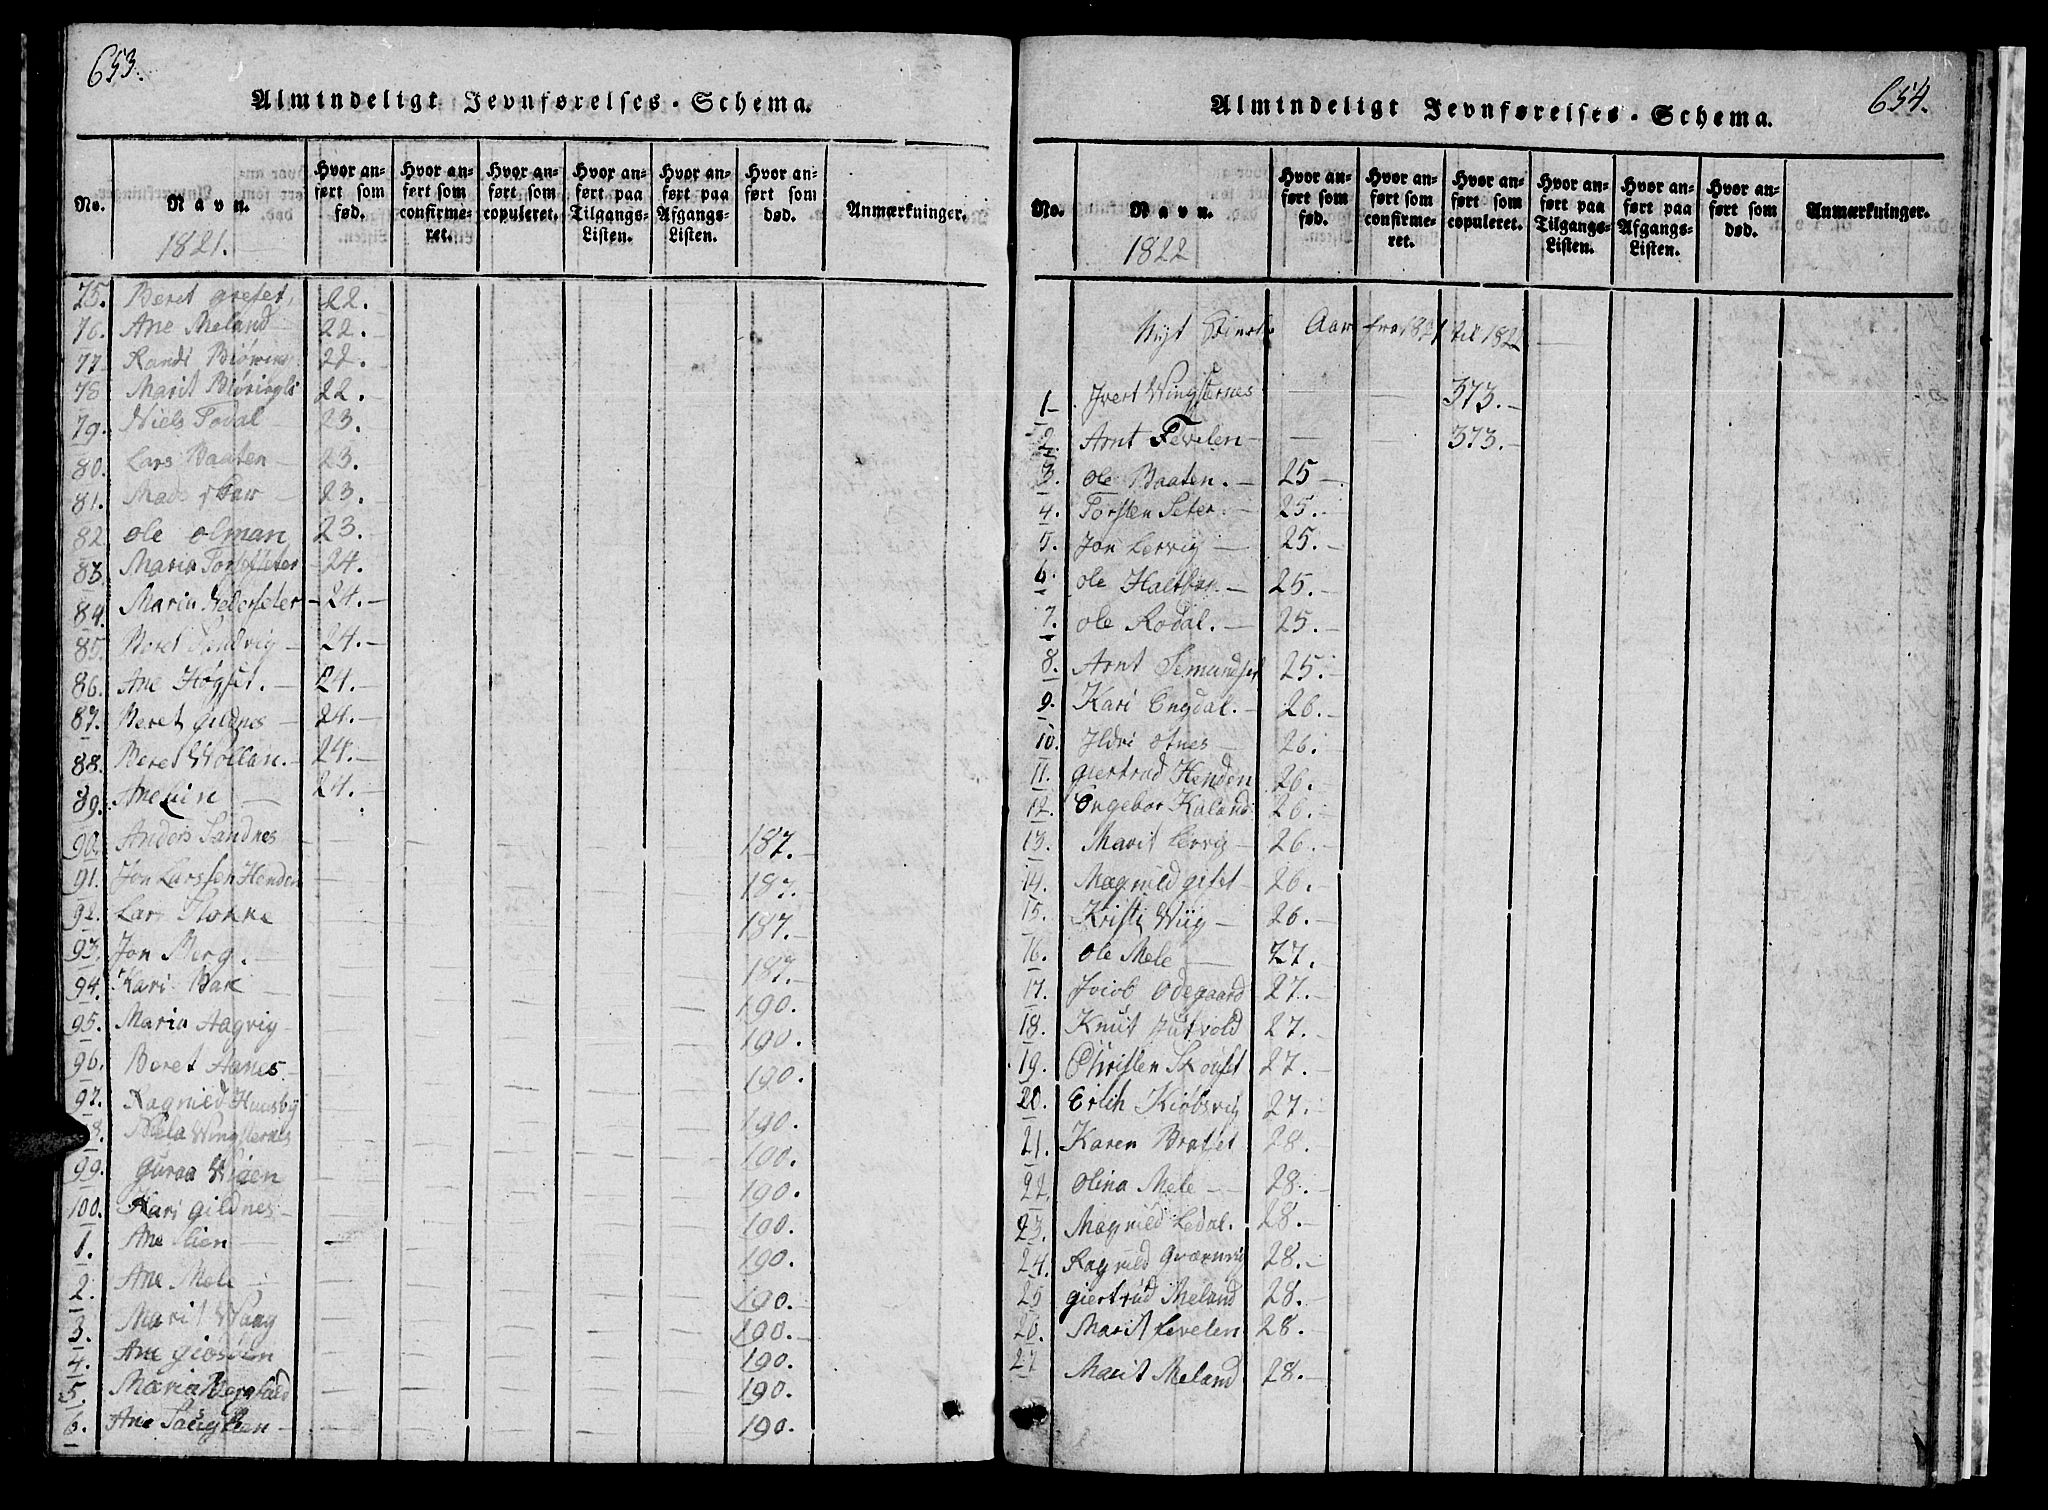 653.
Almindeligt Jevnførelses-Schema.
No. Navn. 1821. Hvor anført som fød. Hvor anført som confirmeret. Hvor anført som copuleret. Hvor anført paa Tilgangs-Listen. Hvor anført paa Afgangs-Listen. Hvor anført som død. Anmærkninger.
75. Beret 22.
76. Ane Meland 22.
77 Randi 22.
78 Marit 22.
79. Niels Foval 23.
80. Lars Baaten 23.
81. Mads 23.
82 Ole Olman 23.
83. Maria 24.
84. Maria 24.
85. Beret Sandvig 24.
86. Ane Høgset. 24.
87. Beret Gildnes 24.
88. Beret Wollan. 24.
89. Ane Lien 24.
90. Anders Sandnes 187.
91. Jon Larssen Henden 187.
92. Lars Flokke 187.
93. Jon Berg. 187.
94. Kari Bak 190.
95. Maria Aagvig 190.
96. Beret Aanes 190.
97. Ragnild Huusby 190.
98. Wingsternes 190.
99. Guraa Wigen 190.
100. Kari Gildnes 190.
1. Ane Lien 190.
2. Ane Mele 190.
3. Marit Waag 190.
4. Ane Giøsven 190.
5. Maria 190.
6. Ane 190.
654.
Almindeligt Jevnførelses-Schema.
No. Navn. 1822 Hvor anført som fød. Hvor anført som confirmeret. Hvor anført som copuleret. Hvor anført paa Tilgangs-Listen. Hvor anført paa Afgangs-Listen. Hvor anført som død. Anmærkninger.
Nyt Aar fra 1821 til 1822
1 Ivert Wingsternes 373.
2. Arnt Fevelen 373.
3. Ole Baaten. 25
4. Torsten Seter. 25.
5. Jon Lervig 25.
6. Ole 25.
7. Ole Rodal. 25.
8. Arnt Semundset 25.
9. Kari Engdal. 26.
10. Ildri Otnes 26.
11. Giertrud Henden 26.
12. Ingebor Kaland 26.
13. Marit Lervig 26.
14. Magnild 26.
15. Kristi Wiig 26.
16. Ole Mele 27.
17. Odegaard 27.
18. Knut 27.
19. Christen 27.
20. Erich Kiøbsvig 27.
21. Karen Bratset 28.
22. Olina Mele 28.
23. Magnild Ledal. 28.
24. Ragnild 28.
25 Giertrud Meland 28.
26. Marit Fevelen 28.
27 Marit Meland 28.